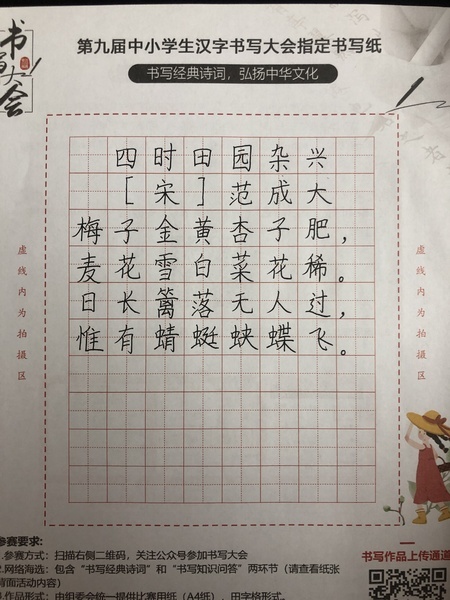 书写大会
第九届中小学生汉字书写大会指定书写纸
书写经典诗词，弘扬中华文化
四时田园杂兴
[宋]范成大
梅子金黄杏子肥，
麦花雪白菜花稀。
日长篱落无人过，
惟有蜻蜓蛱蝶飞。
虚线内为拍摄区
虚线内为拍摄区
参赛要求:
1.参赛方式：扫描右侧二维码，关注公众号参加书写大会
2.网络海选：包含“书写经典诗词”和“书写知识问答”两环节（请查看纸张
背面活动内容）
书写作品上传通道
3.作品形式：由组委会统一提供比赛用纸（A4纸），田字格形式。